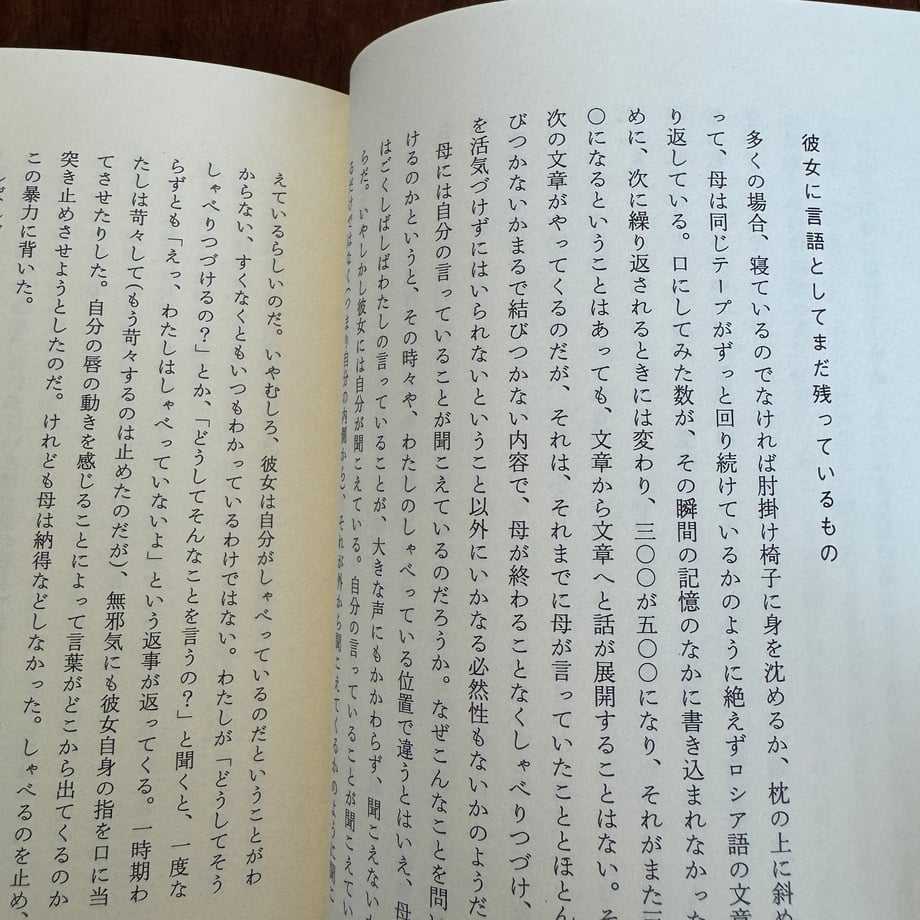 彼女に言語としてまだ残っているもの
多くの場合、寝ているのでなければ肘掛け椅子に身を沈めるか、枕の上に斜め
って、母は同じテープがずっと回り続けているかのように絶えずロシア語の文章
り返している。口にしてみた数が、その瞬間の記憶のなかに書き込まれなかった
めに、次に繰り返されるときには変わり、三〇〇が五〇〇になり、それがまた三
〇になるということはあっても、文章から文章へと話が展開することはない。そ
次の文章がやってくるのだが、それは、それまでに母が言っていたこととほとん
びつかないかまるで結びつかない内容で、母が終わることなくしゃべりつづけ、
を活気づけずにはいられないということ以外にいかなる必然性もないかのようだ
母には自分の言っていることが聞こえているのだろうか。なぜこんなことを問い
けるのかというと、その時々や、わたしのしゃべっている位置で違うとはいえ、母
はごくしばしばわたしの言っていることが、大きな声にもかかわらず、聞えないか
らだ。いやしかし彼女には自分が聞こえている。自分の言っていることが聞こえてい
るだけではなく(つまり自分の内側から)、それが外から聞こえてくるかのように聞こ
えているらしいのだ。いやむしろ、彼女は自分がしゃべっているのだということがわ
からない、すくなくともいつもわかっているわけではない。わたしが「どうしてそう
しゃべりつづけるの？」とか、「どうしてそんなことを言うの？」と聞くと、一度な
らずとも「えっ、わたしはしゃべっていないよ」という返事が返ってくる。一時期わ
たしは苛々して(もう苛々するのは止めたのだが)、無邪気にも彼女自身の指を口に当
てさせたりした。自分の唇の動きを感じることによって言葉がどこから出てくるのか
突き止めさせようとしたのだ。けれども母は納得などしなかった。しゃべるのを止め、
この暴力に背いた。